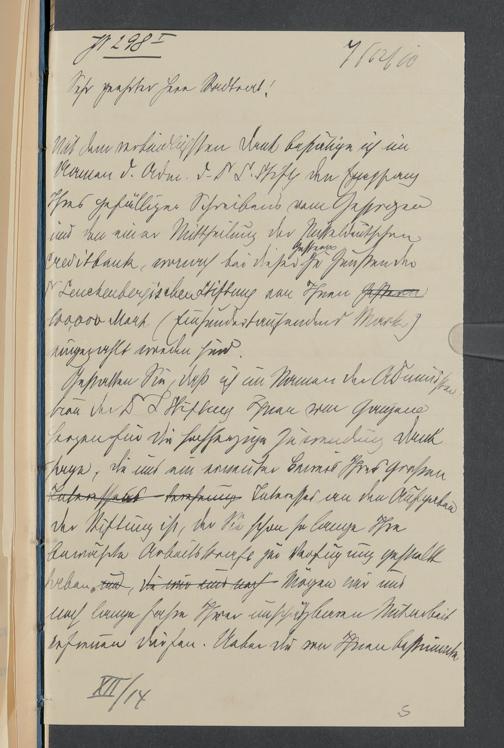 N 298 I
7/12/10
Sehr geehrter Herr Stadtrat!
Mit dem verbindlichsten Dank bestätige ich im
Namen d. Adm. d. D S. Stiftg den Empfang
Ihres gefälligen Schreibens vom Gestrigen
und den einer Mittheilung der Mitteldeutschen
Creditbank, wonach bei dieser gestern zu Gunsten der
D Senckenbergischen Stiftung von Ihnen gestern
100,000 Mark (Einhunderttausend Mark)
eingezahlt worden sind.
Gestatten Sie, daß ich im Namen der Administra
tion der D S Stiftung Ihnen von ganzem
Herzen für die hochherzige Zuwendung Dank
sage, die uns ein erneuter Beweis Ihres großen
Interesses an den Aufgaben
der Stiftung ist, der Sie schon so lange Ihre
bewährte Arbeitskraft zur Verfügung gestellt
haben, und, die wir uns noch Mögen wir uns
noch lange Jahre Ihrer unschätzbaren Mitarbeit
erfreuen dürfen. Ueber die von Ihnen bestimmte
XII/14
S